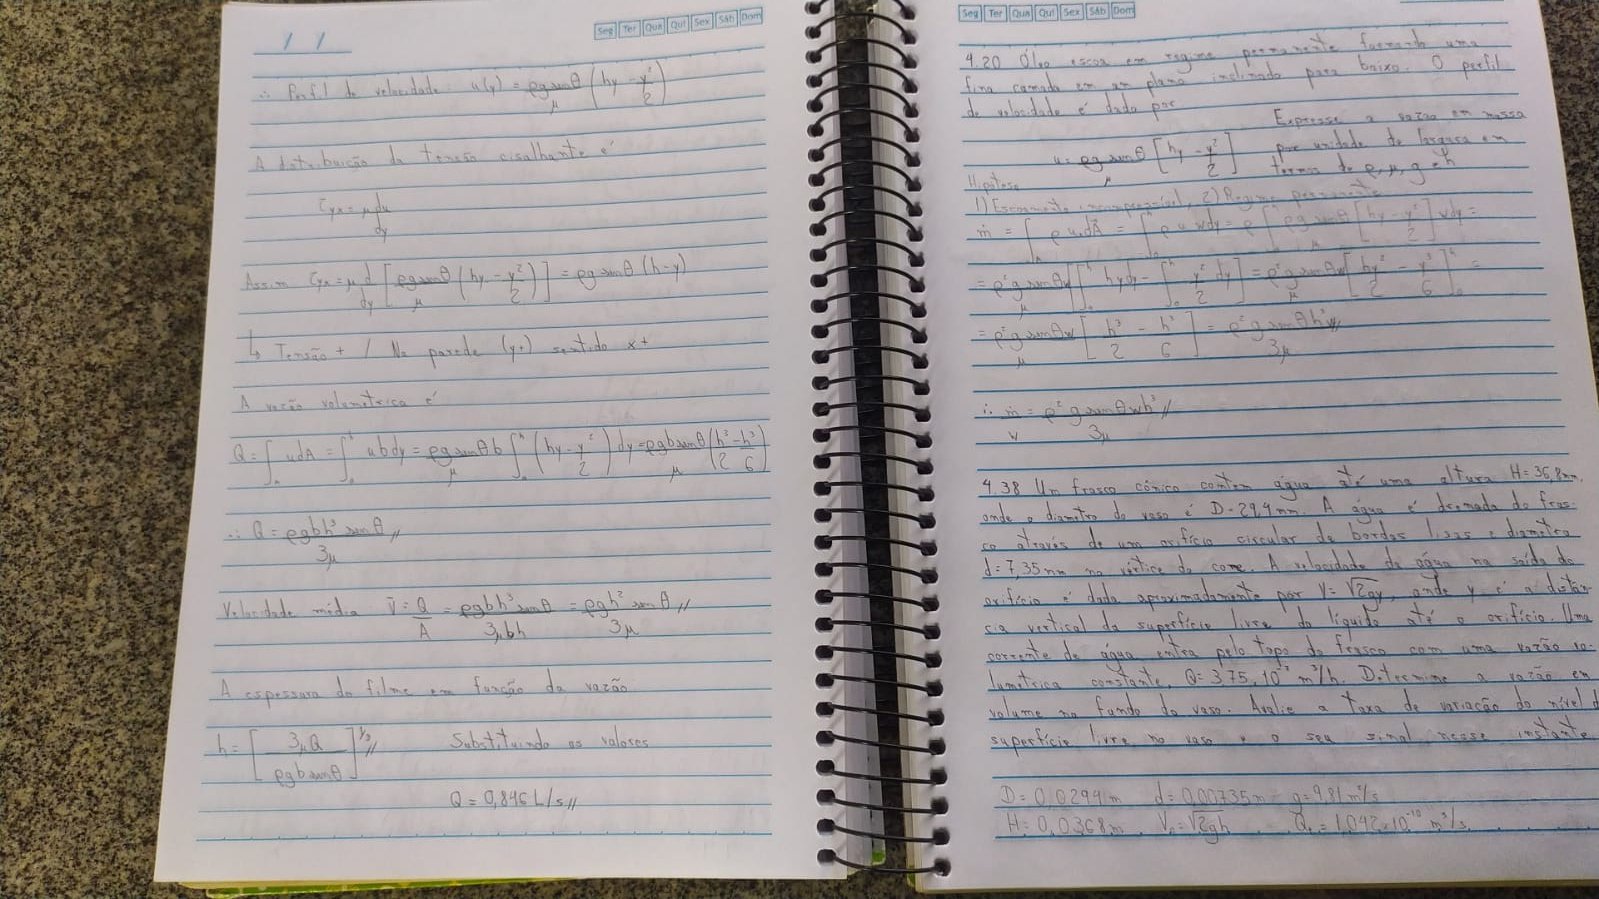 Seg Ter Qua Qui Sex Sáb Dom
/ /
∴ Perfil de velocidade: u(y) = ρg senθ/μ (hy - y²/2)
A distribuição da tensão cisalhante é
τyx = μ du/dy
Assim τyx = μ d/dy [ρg senθ/μ (hy - y²/2)] = ρg senθ (h-y)
↳ Tensão + / Na parede (y+) sentido x+
A vazão volumétrica é
Q = ∫A u dA = ∫₀ʰ u b dy = ρg senθ b/μ ∫₀ʰ (hy - y²/2) dy = ρgb senθ/μ (h³/2 - h³/6)
∴ Q = ρgbh³ senθ/3μ //
Velocidade média V̄ = Q/A = ρgbh³ senθ/3μbh = ρgh² senθ/3μ //
A espessura do filme em função da vazão
h = [3μQ/ρgb senθ]^1/3 // Substituindo os valores
Q = 0,846 L/s //
Seg Ter Qua Qui Sex Sáb Dom
4.20 Óleo escoa em regime permanente formando uma
fina camada em um plano inclinado para baixo. O perfil
de velocidade é dado por
u = ρg senθ/μ [hy - y²/2] Expresse a vazão em massa
por unidade de largura em
termos de ρ, μ, g e h
Hipótese
1) Escoamento incompressível, 2) Regime permanente
ṁ = ∫A ρ u dA = ∫₀ʰ ρ u w dy = ρ ∫₀ʰ ρg senθ/μ [hy - y²/2] w dy =
= ρ²g senθ w/μ [∫₀ʰ hy dy - ∫₀ʰ y²/2 dy] = ρ²g senθ w/μ [hy²/2 - y³/6]₀ʰ =
= ρ²g senθ w/μ [h³/2 - h³/6] = ρ²g senθ h³w/3μ //
∴ ṁ/w = ρ²g senθ wh³/3μ //
4.38 Um frasco cônico contém água até uma altura H = 36,8 mm,
onde o diâmetro do vaso é D = 29,4 mm. A água é drenada do fras-
co através de um orifício circular de bordas lisas e diâmetro
d = 7,35 mm no vértice do cone. A velocidade da água na saída do
orifício é dada aproximadamente por V = √2gy, onde y é a distân-
cia vertical da superfície livre do líquido até o orifício. Uma
corrente de água entra pelo topo do frasco com uma vazão vo-
lumétrica constante, Q = 3,75.10⁻⁷ m³/h. Determine a vazão em
volume no fundo do vaso. Avalie a taxa de variação do nível d
superfície livre no vaso e o seu sinal nesse instante
D = 0,0294 m d = 0,00735 m g = 9,81 m/s
H = 0,0368 m V₀ = √2gh Q₀ = 1,042×10⁻¹⁰ m³/s